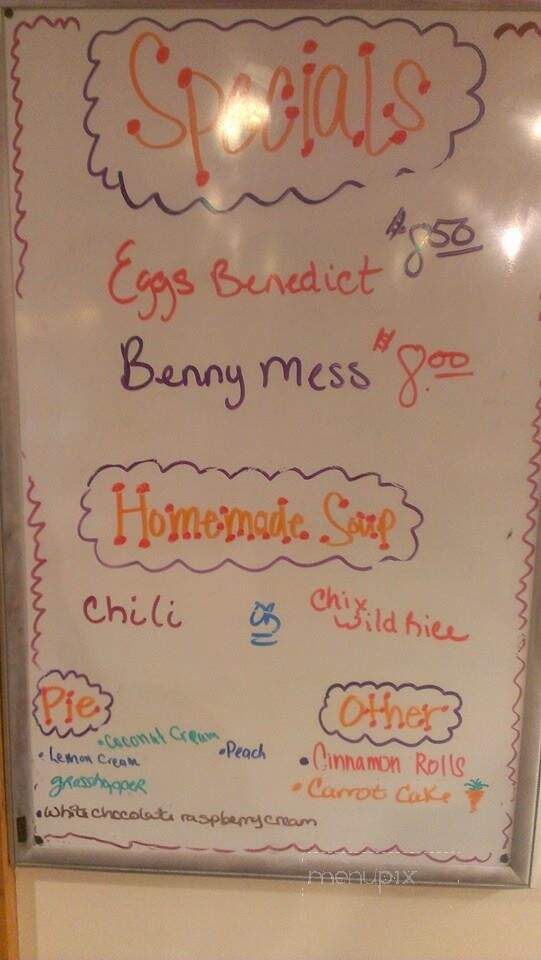 Specials
Eggs Benedict $8.50
Benny Mess $8.00
Homemade Soup
Chili
Chix
Wild Rice
Pie
• Coconut Cream
• Lemon Cream
• Peach
grasshopper
• White chocolate raspberry cream
Other
• Cinnamon Rolls
• Carrot Cake
menupix